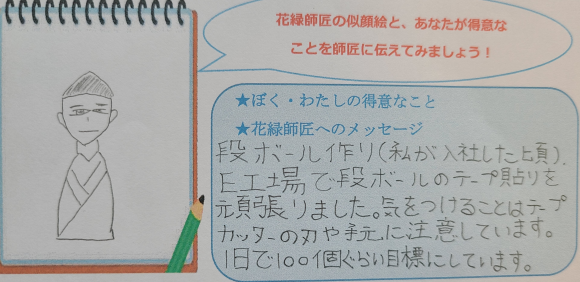 花緑師匠の似顔絵と、あなたが得意な
ことを師匠に伝えてみましょう！
★ぼく・わたしの得意なこと
★花緑師匠へのメッセージ
段ボール作り(私が入社した頃).
E工場で段ボールのテープ貼りを
頑張りました。気をつけることはテープ
カッターの刃や手元に注意しています。
1日で100個ぐらい目標にしています。